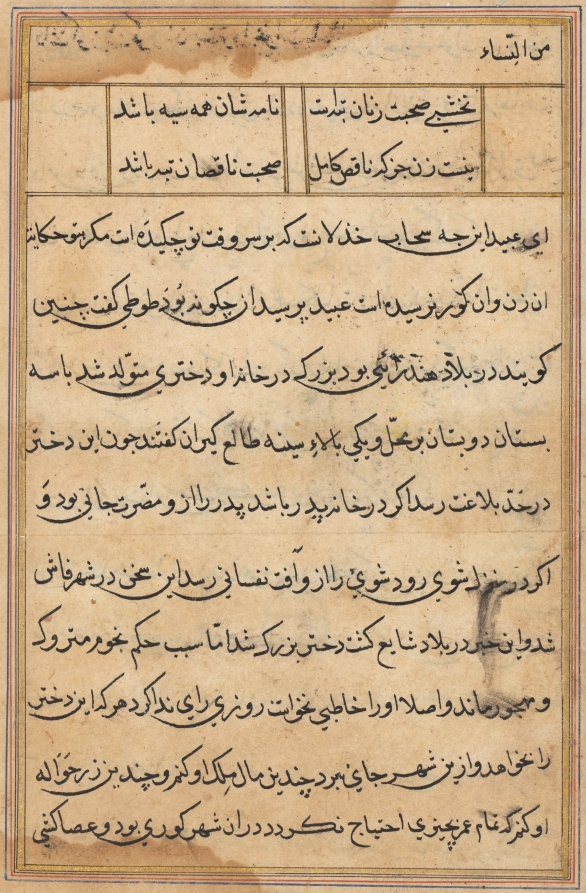 من النّساء
نخشبی صحبت زنان تبه است نامه شان همه سیه باشد
نیست زن جز که ناقص کامل صحبت ناقصان تبه باشد
ای عبید این چه سحاب خذلانست که بر سر وقت تو چکیده است مکر بتو حکایت
ان زن وان کور نرسیده است عبید پرسید ان چکونه بُوَد طوطی کفت چنین
کویند در بلاد هند رائی بود بزرک در خانه او دختری متوّلد شد با سه
بستان دو بستان بر محلّ و یکی بالاءِ سینه طالع کیران کفتند چون این دختر
در حَدّ بلاغت رسد اکر در خانه پدر باشد پدر را از و مضّرت جانی بود وَ
اکر در منزل شوی رود شوی را از و آفت نفسانی رسد این سخن در شهر فاش
شد و این خبر در بلاد شایع کشت دختر بزرک شد امّا سبب حکم نجوم متروک
و مهجور ماند و اصلا او را خاطبی نخواست روزی رای ندا کرد هر که این دختر
را بخواهد و ازین شهر جای ببرد چندین مال مِلک او کنم و چندین زر حَواله
او کنم که تمام عمر بچیزی احتیاج نکردد در ان شهر کوری بود و عصا کشی